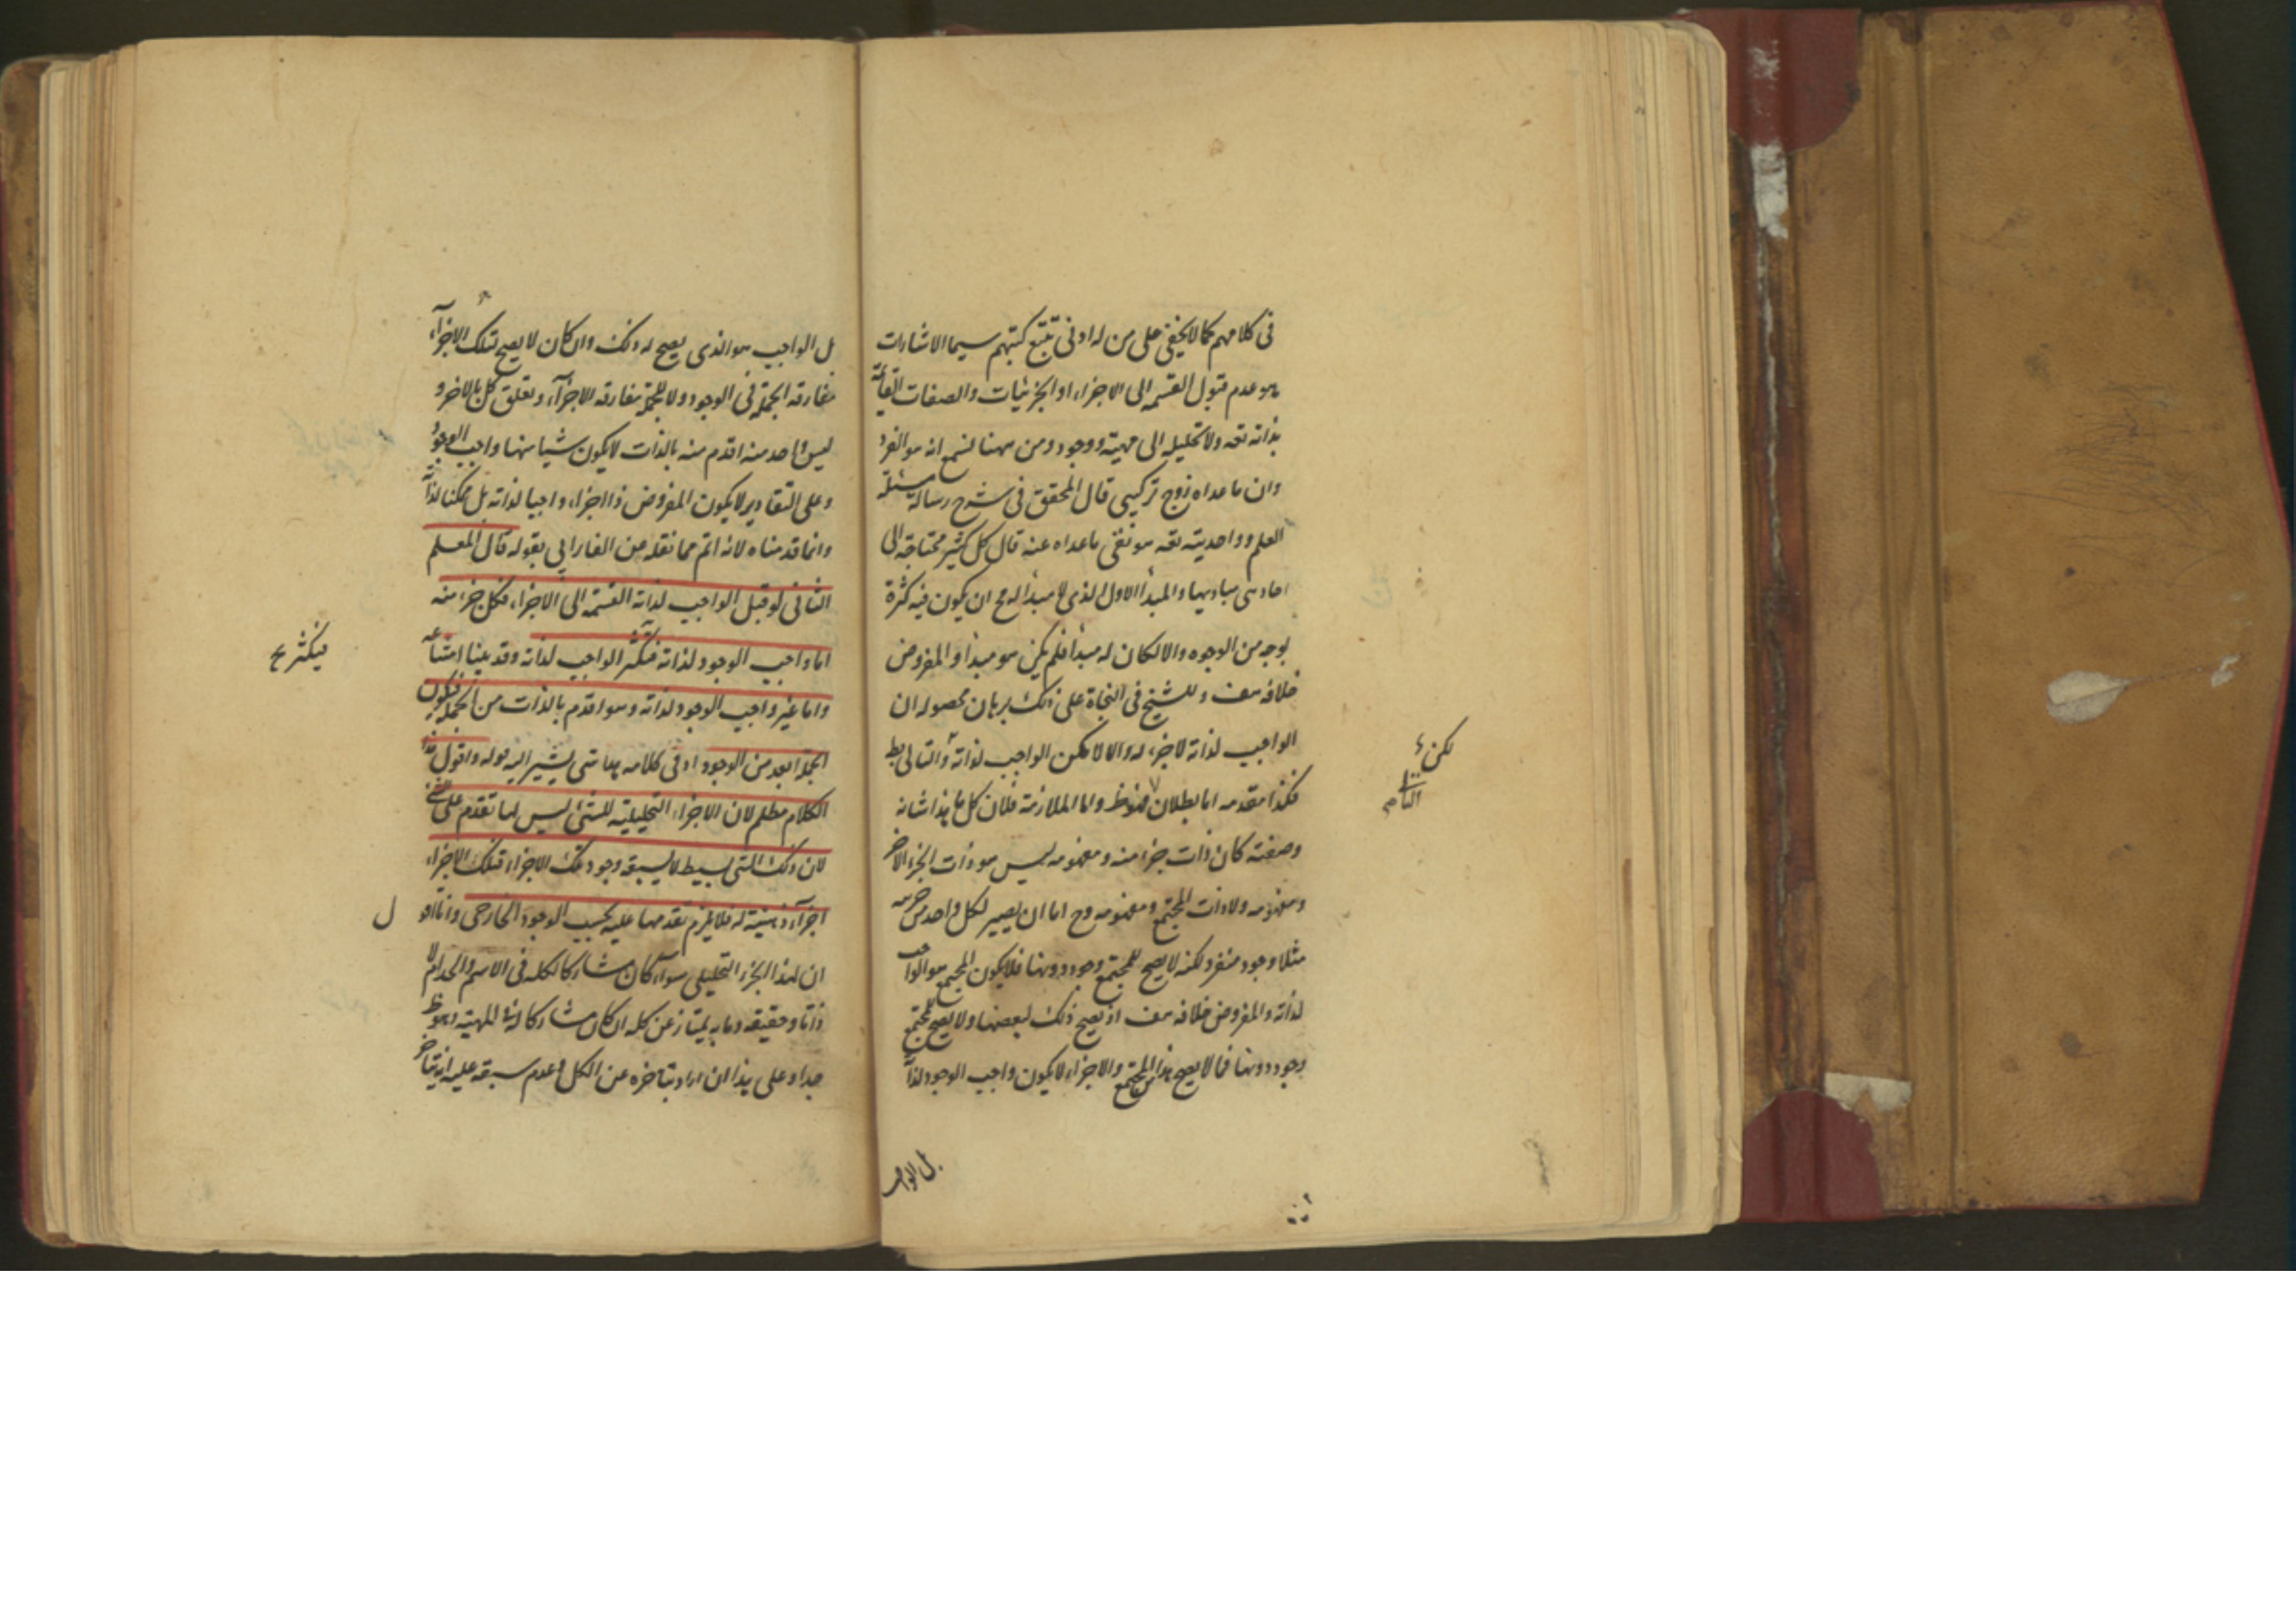 فى كلامهم كما لا يخفى على من له ادنى تتبع كتبهم سيما الاشارات
هو عدم قبول القسمه الى الاجزاء او الجزئيات والصفات القائمة
بذاته تعه ولا تحليله الى مهية ووجود ومن ههنا لنسمع انه هو الفرد
وان ما عداه زوج تركيبى قال المحقق فى شرح رسالة مسئلة
العلم وواحديته تعه هو نفى ما عداه عنه قال كل كثير محتاجة الى
احاد هى مباديها والمبدأ الاول الذى لا مبدأ له مح ان يكون فيه كثرة
بوجه من الوجوه والا لكان له مبدأ فلم يكن هو مبدأ والمفروض
خلافه هف وللشيخ فى النجاة على ذلك برهان محصوله ان
الواجب لذاته لا جزء له والا لا مكن الواجب لذاته والتالى بط
فكذا مقدمه اما بطلان فظ واما الملازمة فلان كل ما هذا شانه
وصفته كان ذات جزء منه ومفهومه ليس هو ذات الجزء الاخر
ومفهومه ولا ذات المجتمع ومفهومه وح اما ان يصير لكل واحد من جزئيه
مثلا وجود منفرد لكنه لا يصح للمجتمع وجود دونها فلا يكون المجتمع هو الواجب
لذاته والمفروض خلافه هف او يصح ذلك لبعضها ولا يصح للمجتمع
وجود دونها فما لا يصح هذا من المجتمع والاجزاء لا يكون واجب الوجود لذاته
لكن
التام
بل الواجب
بل الواجب هو الذى يصح له ذلك وان كان لا يصح لتلك الاجزآء
مفارقه الجملة فى الوجود ولا للجملة مفارقه الاجزآء وتعلق كل بالاخر و
ليس واحد منه اقدم منه بالذات لا يكون شيا منها واجب الوجود
وعلى التقادير لا يكون المفروض ذا اجزاء واجبا لذاته بل ممكنا لذاته
وانما قدمناه لانه اتم مما نقله من الفارابى بقوله قال المعلم
الثانى لو قبل الواجب لذاته القسمة الى الاجزاء فكل جزء منه
اما واجب الوجود لذاته فتكثر الواجب لذاته وقد بينا امتناعه
واما غير واجب الوجود لذاته وهو اقدم بالذات من الجملة فيكون
الجملة ابعد من الوجود اذ فى كلامه بعد شئ يشير اليه بوله واقول هذا
الكلام مظلم لان الاجزاء التحليلية للشئ ليس لها تقدم على الشئ
لان ذلك الشى بسيط لا يسبقه وجود تلك الاجزاء فتلك الاجزاء
اجزآء ذهنية له فلا يلزم تقدمها عليه بحسب الوجود الخارجى وانا اقو
ان لهذا الجزء التحليلى سوآء كان مشاركا لكله فى الاسم والحد ام لا
ذاتا وحقيقه وما به يمتاز عن كله ان كان مشاركا له فى المهية وهو ظ
جدا وعلى هذا ان اراد بتاخره عن الكل وعدم سبقه عليه انه يتاخر
فيكثر
ل